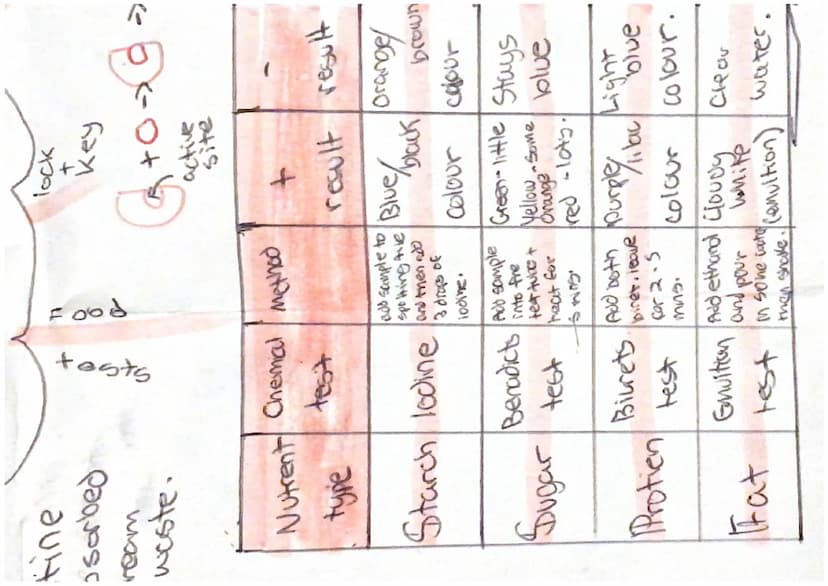 lock
+
key
+ →
active
site
food
tests
tine
sorbed
ream
waste.
Nutrient
type
Chemical
test
Method
+
result
-
result
Starch
Iodine
add sample to
spotting tile
and then add
3 drops of
iodine.
Blue/
black
colour
Orange/
brown
colour
Sugar
Benadicts
test
Add sample
into the
test tube +
heat for
5 mins.
Green - little
Yellow - some
orange
red - lots.
Stays
blue
Protien
Biurets
test
Add both
biuret. leave
for 2-5
mins.
purple/lilac
colour
Light
blue
colour.
Fat
Emultion
test
Add ethanol
and pour
in some water
then shake.
Cloudy
white
(emultion)
Clear
water.